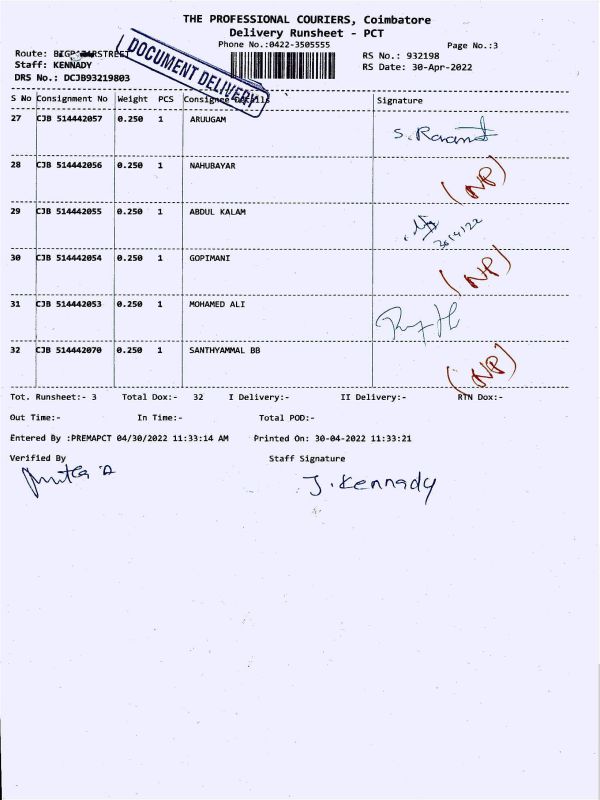 THE PROFESSIONAL COURIERS, Coimbatore
Delivery Runsheet - PCT
Phone No.:0422-3505555
Page No.:3
Route:
RS No.: 932198
Staff: KENNADY
RS Date: 30-Apr-2022
DRS No.: DCJB93219803
DOCUMENT DELIVERY
S No Consignment No Weight PCS Consignee Details Signature
27 CJB 514442057 0.250 1 ARUUGAM
28 CJB 514442056 0.250 1 NAHUBAYAR (NP)
29 CJB 514442055 0.250 1 ABDUL KALAM
30 CJB 514442054 0.250 1 GOPIMANI (NP)
31 CJB 514442053 0.250 1 MOHAMED ALI
32 CJB 514442070 0.250 1 SANTHYAMMAL BB (NP)
Tot. Runsheet:- 3 Total Dox:- 32 I Delivery:- II Delivery:- RTN Dox:-
Out Time:- In Time:- Total POD:-
Entered By :PREMAPCT 04/30/2022 11:33:14 AM Printed On: 30-04-2022 11:33:21
Verified By Staff Signature
J. Kennady